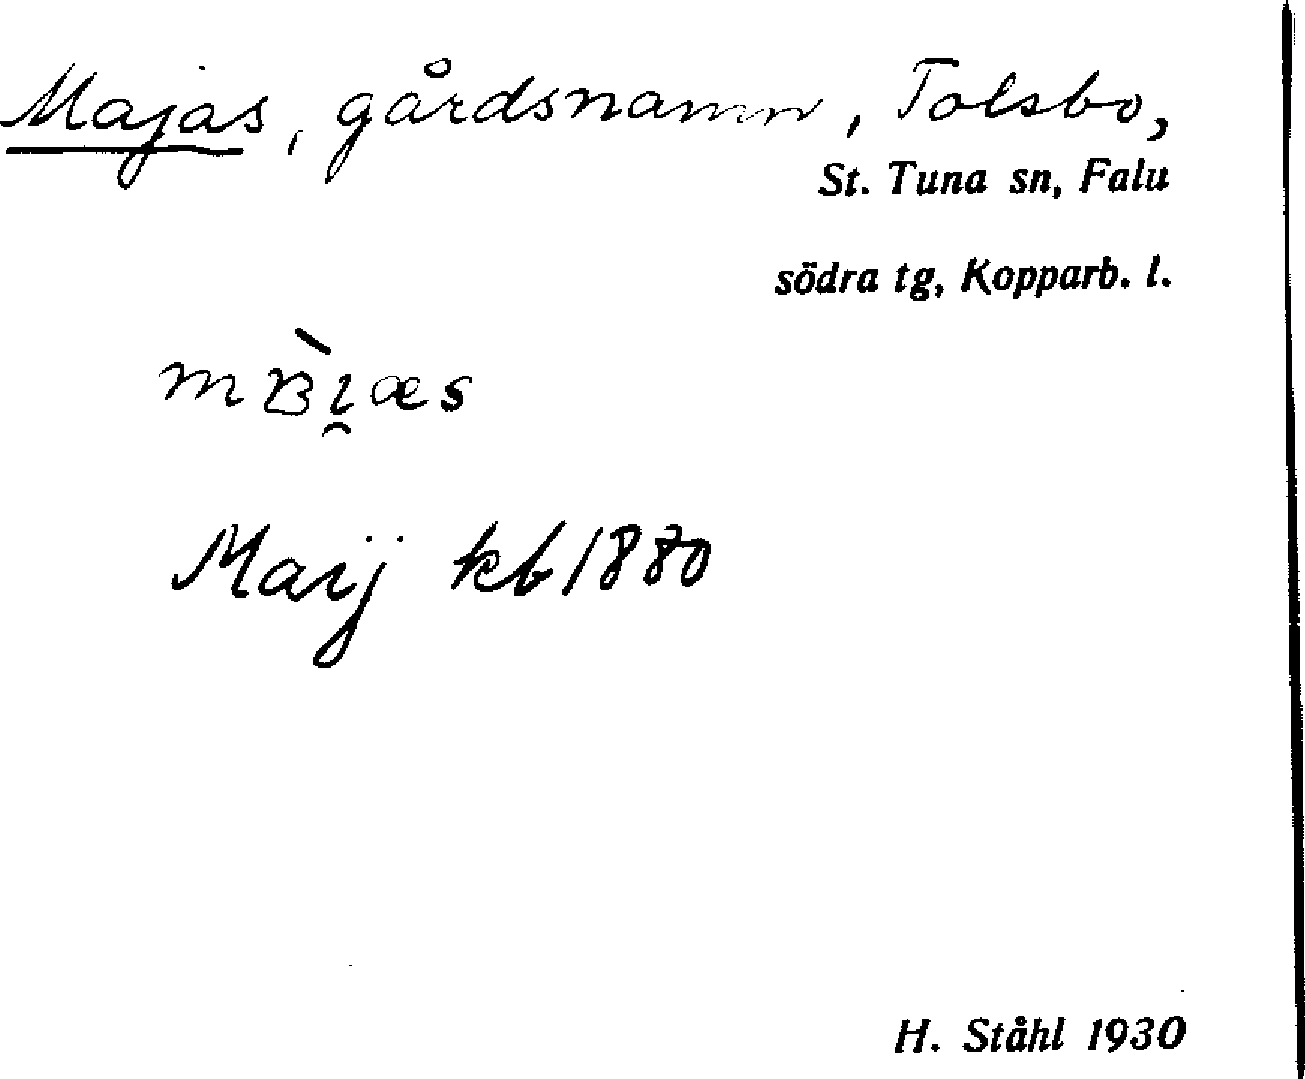 Majas, gårdsnamn, Tolsbo,
St. Tuna sn, Falu
södra tg, Kopparb. l.
Maij kb 1880
H. Ståhl 1930